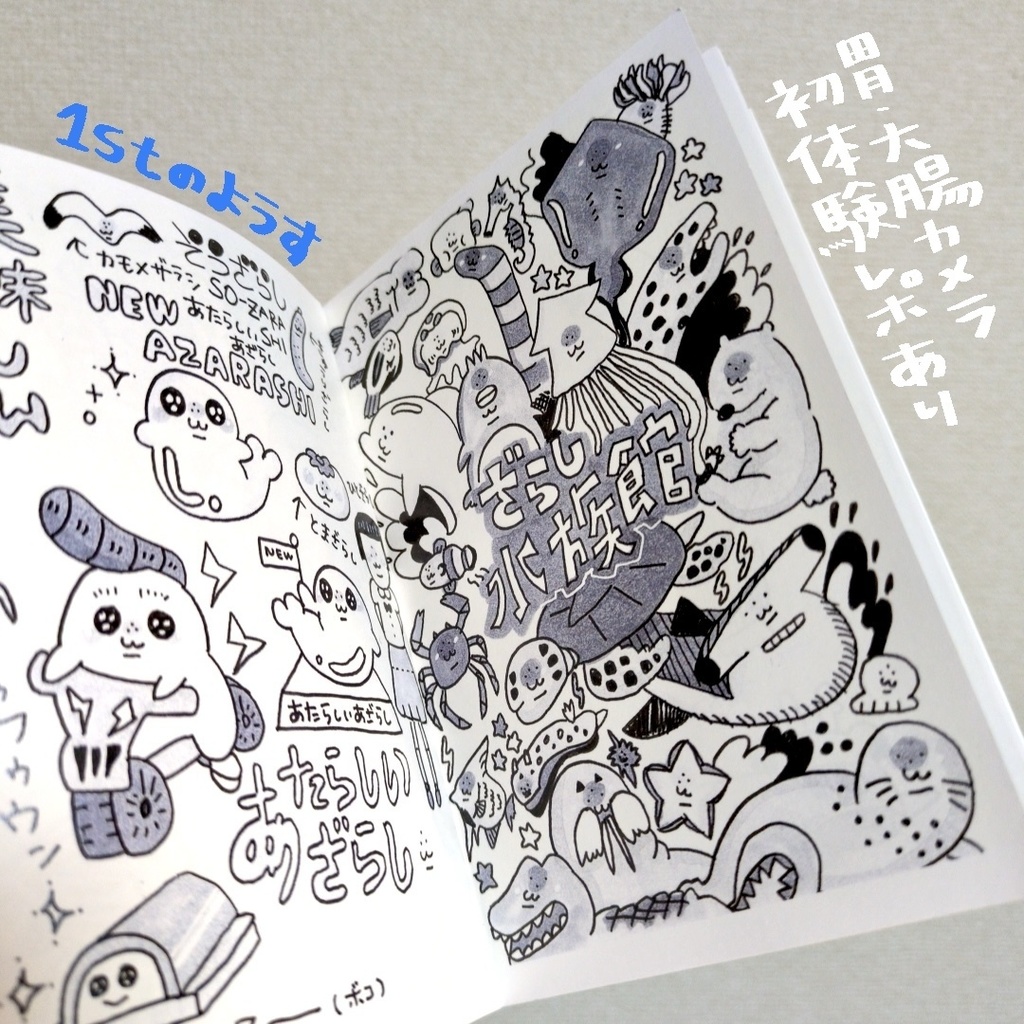 1stのようす
胃・大腸カメラ
初体験レポあり
カモメザラシ
そうざらし
SO-ZARASHI
NEW
AZARASHI
あたらしい
あざらし
とまざらし
NEW
あたらしいあざらし
あたらしい
あざらし
(ボコ)
ざらし
水族館